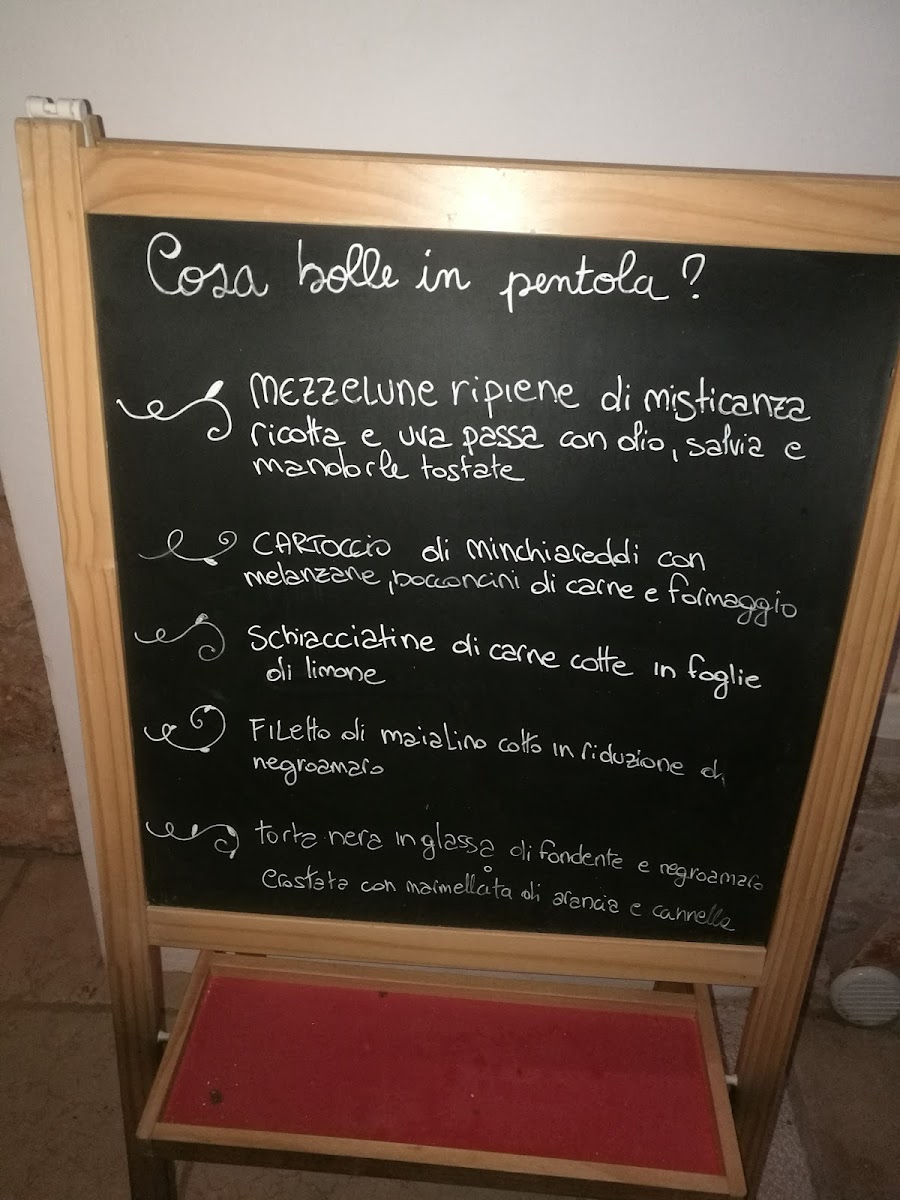 Cosa bolle in pentola?
MEZZELUNE ripiene di misticanza
ricotta e uva passa con olio, salvia e
mandorle tostate
CARTOCCIO di Minchiareddi con
melanzane, bocconcini di carne e formaggio
Schiacciatine di carne cotte in foglie
di limone
FILetto di maialino cotto in riduzione di
negroamaro
torta nera in glassa di fondente e negroamaro
o
crostata con marmellata di arancia e cannella